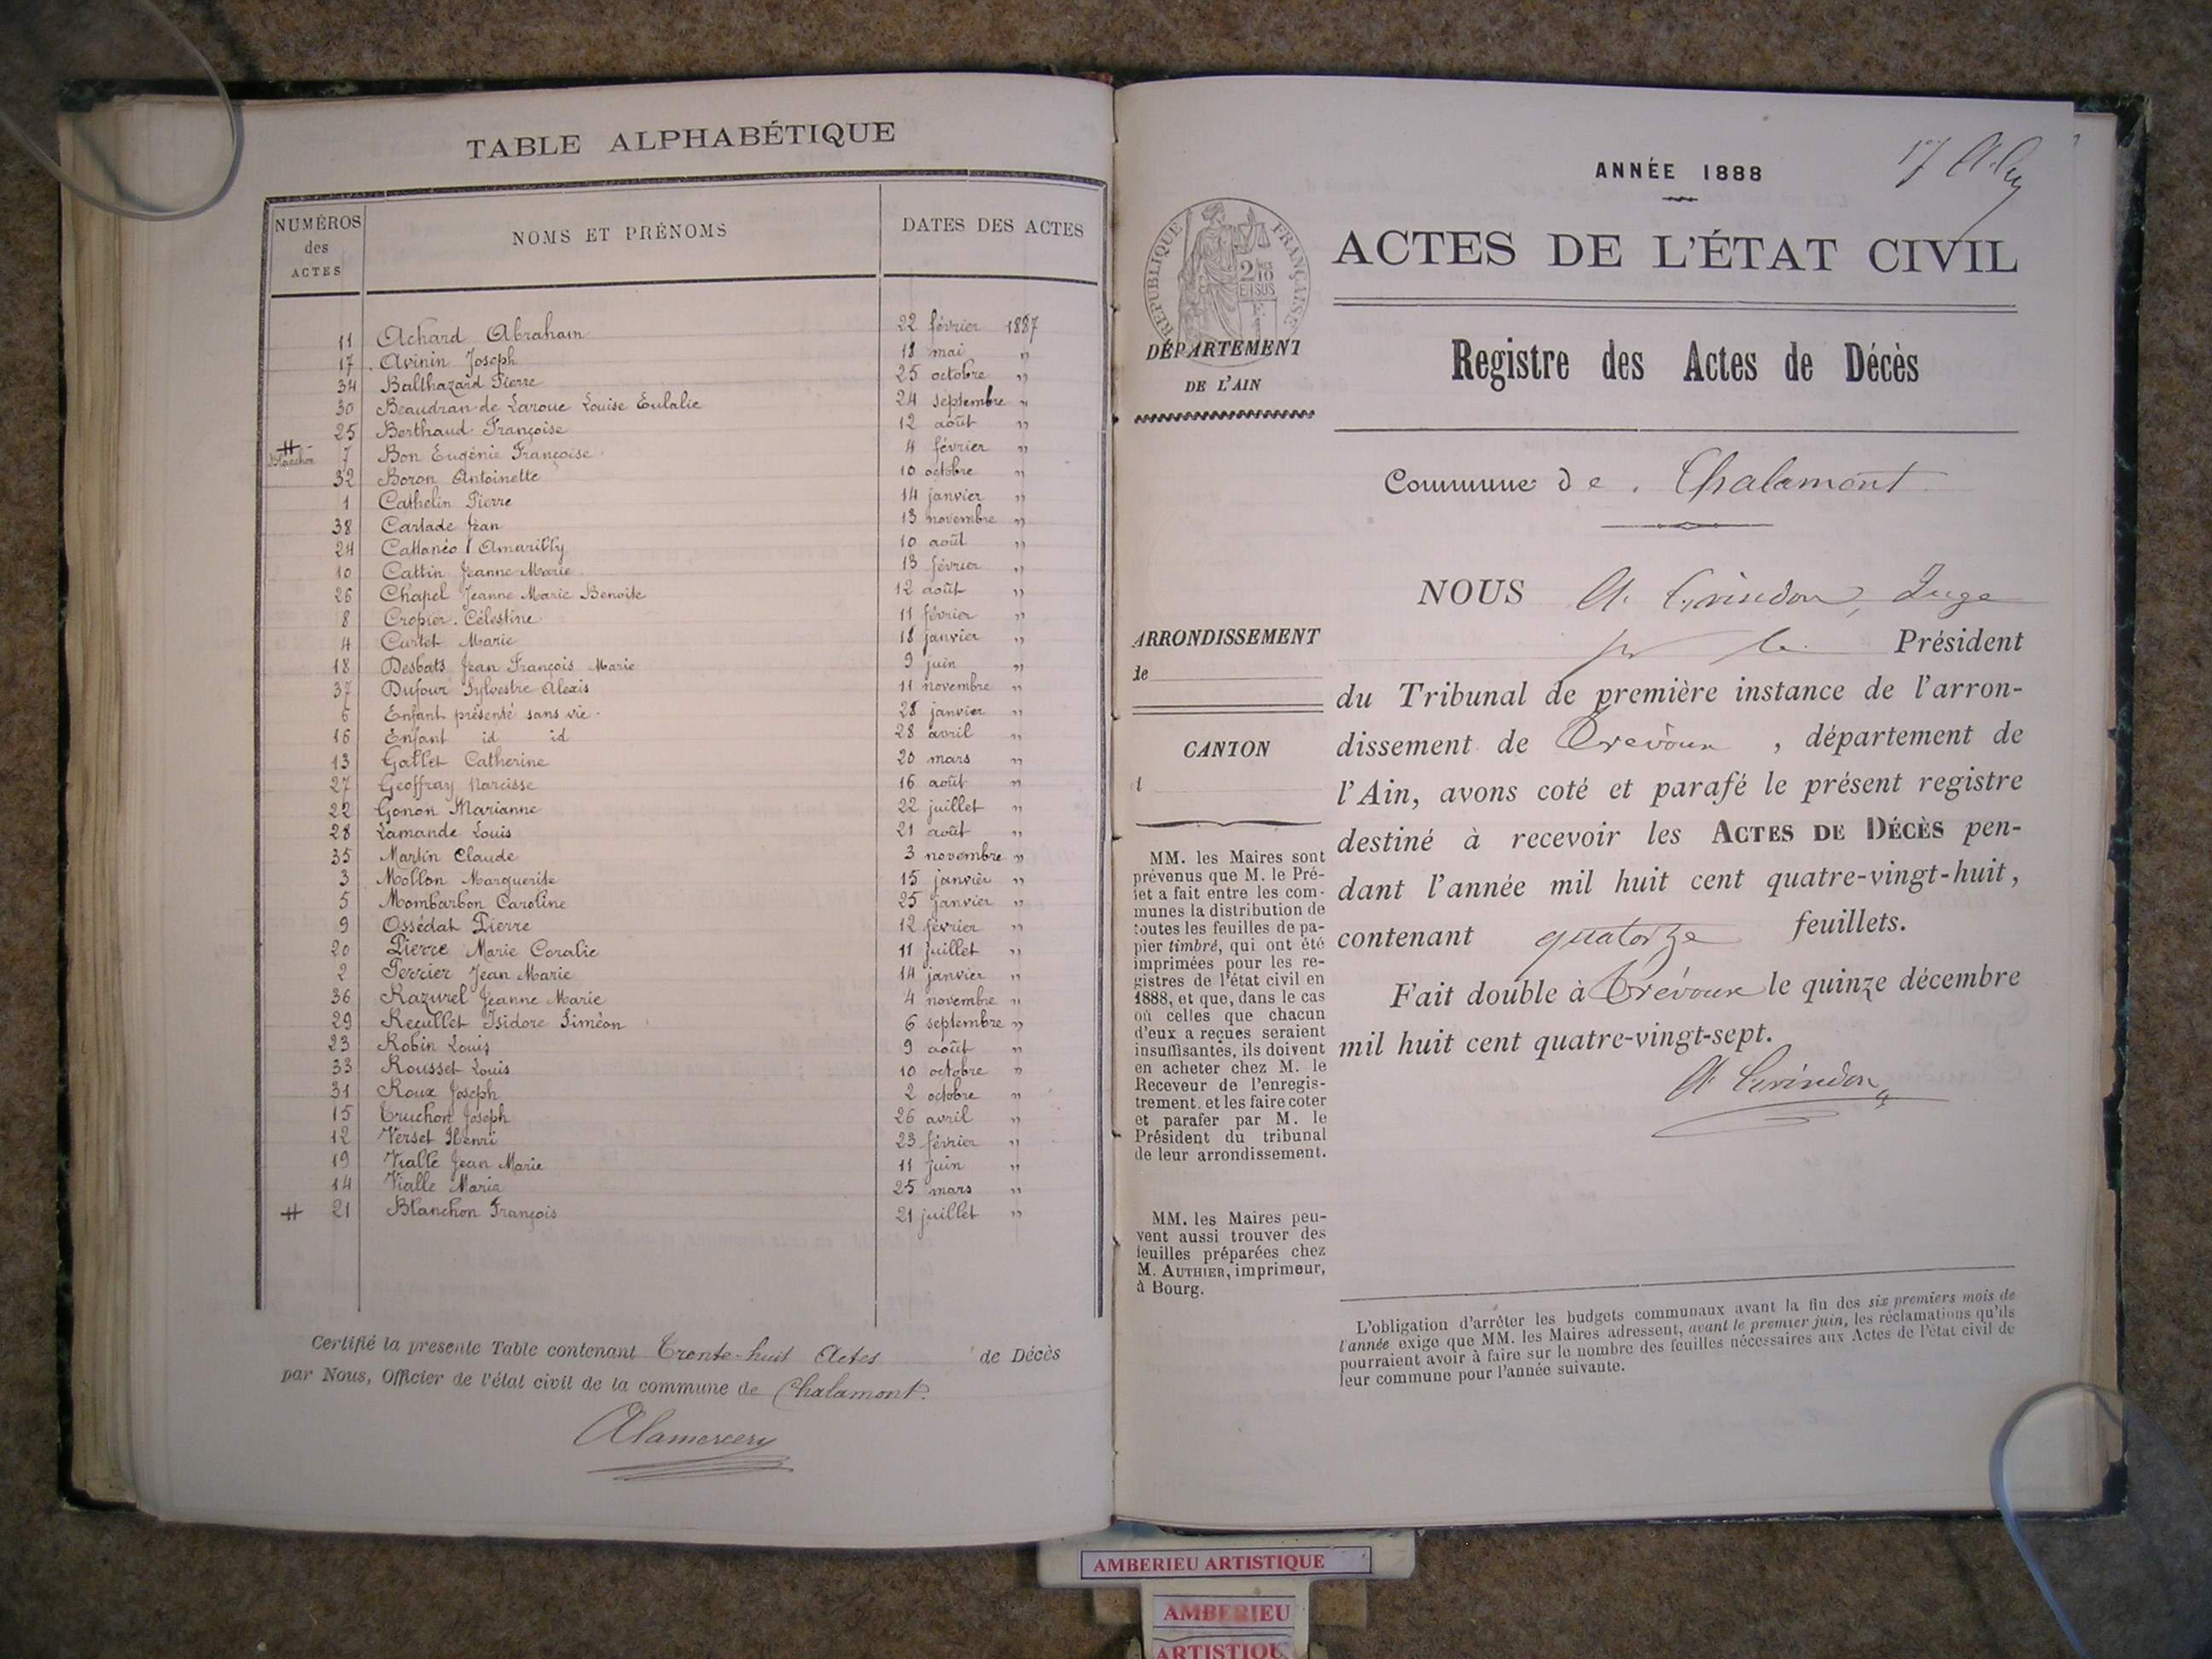 TABLE ALPHABÉTIQUE
NUMÉROS des ACTES NOMS ET PRÉNOMS DATES DES ACTES
11 Achard Abraham 22 février 1887
17 Avinin Joseph 18 mai "
34 Balthazard Pierre 25 octobre "
30 Beaudran de Laroue Louise Eulalie 24 septembre "
25 Berthaud Françoise 12 août "
# Blanchon 7 Bon Eugénie Françoise 4 février "
32 Boron Antoinette 10 octobre "
1 Cathelin Pierre 14 janvier "
38 Cartade Jean 13 novembre "
24 Cattanéo Amarilly 10 août "
10 Cattin Jeanne Marie 13 février "
26 Chapel Jeanne Marie Benoite 12 août "
8 Cropier Célestine 11 février "
4 Curtet Marie 18 janvier "
18 Desbats Jean François Marie 9 juin "
37 Dufour Sylvestre Alexis 11 novembre "
6 Enfant présenté sans vie 28 janvier "
16 Enfant id id 28 avril "
13 Gallet Catherine 20 mars "
27 Geoffray Narcisse 16 août "
22 Gonon Marianne 22 juillet "
28 Lamande Louis 21 août "
35 Martin Claude 3 novembre "
3 Mollon Marguerite 15 janvier "
5 Mombarbon Caroline 25 janvier "
9 Ossédat Pierre 12 février "
20 Pierre Marie Coralie 11 juillet "
2 Perrier Jean Marie 14 janvier "
36 Razurel Jeanne Marie 4 novembre "
29 Recullet Isidore Siméon 6 septembre "
23 Robin Louis 9 août "
33 Rousset Louis 10 octobre "
31 Roux Joseph 2 octobre "
15 Truchon Joseph 26 avril "
12 Verset Henri 23 février "
19 Vialle Jean Marie 11 juin "
14 Vialle Maria 25 mars "
# 21 Blanchon François 21 juillet "
Certifié la présente Table contenant Trente-huit Actes de Décès
par Nous, Officier de l'état civil de la commune de Chalamont.
Alamercery
ANNÉE 1888
ACTES DE L'ÉTAT CIVIL
RÉPUBLIQUE FRANÇAISE
DÉPARTEMENT
DE L'AIN
Registre des Actes de Décès
Commune de Chalamont
ARRONDISSEMENT
de
CANTON
MM. les Maires sont
prévenus que M. le Pré-
fet a fait entre les com-
munes la distribution de
toutes les feuilles de pa-
pier timbré, qui ont été
imprimées pour les re-
gistres de l'état civil en
1888, et que, dans le cas
où celles que chacun
d'eux a reçues seraient
insuffisantes, ils doivent
en acheter chez M. le
Receveur de l'enregis-
trement, et les faire coter
et parafer par M. le
Président du tribunal
de leur arrondissement.
MM. les Maires peu-
vent aussi trouver des
feuilles préparées chez
M. AUTHIER, imprimeur,
à Bourg.
NOUS A. Grindon, Juge
pr le Président
du Tribunal de première instance de l'arron-
dissement de Trévoux, département de
l'Ain, avons coté et parafé le présent registre
destiné à recevoir les ACTES DE DÉCÈS pen-
dant l'année mil huit cent quatre-vingt-huit,
contenant quatorze feuillets.
Fait double à Trévoux le quinze décembre
mil huit cent quatre-vingt-sept.
A Grindon
L'obligation d'arrêter les budgets communaux avant la fin des six premiers mois de
l'année exige que MM. les Maires adressent, avant le premier juin, les réclamations qu'ils
pourraient avoir à faire sur le nombre des feuilles nécessaires aux Actes de l'état civil de
leur commune pour l'année suivante.
AMBERIEU ARTISTIQUE
AMBERIEU
ARTISTIQU